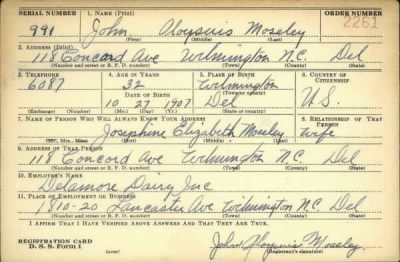 SERIAL NUMBER 1. NAME (Print) ORDER NUMBER
991 John Aloysuis Moseley 2261
(First) (Middle) (Last)
2. ADDRESS (Print)
118 Concord Ave Wilmington N.C. Del
(Number and street or R. F. D. number) (Town) (County) (State)
3. TELEPHONE 4. AGE IN YEARS 5. PLACE OF BIRTH 6. COUNTRY OF CITIZENSHIP
6087 32 Wilmington
DATE OF BIRTH (Town or county)
10 27 1907 Del U.S.
(Exchange) (Number) (Mo.) (Day) (Yr.) (State or country)
7. NAME OF PERSON WHO WILL ALWAYS KNOW YOUR ADDRESS 8. RELATIONSHIP OF THAT PERSON
Josephine Elizabeth Moseley wife
(Mr., Mrs., Miss) (First) (Middle) (Last)
9. ADDRESS OF THAT PERSON
118 Concord Ave Wilmington N.C. Del
(Number and street or R. F. D. number) (Town) (County) (State)
10. EMPLOYER'S NAME
Delamore Dairy Inc
11. PLACE OF EMPLOYMENT OR BUSINESS
1810-20 Lancaster Ave Wilmington N.C. Del
(Number and street or R. F. D. number) (Town) (County) (State)
I AFFIRM THAT I HAVE VERIFIED ABOVE ANSWERS AND THAT THEY ARE TRUE.
REGISTRATION CARD
D. S. S. Form 1 (over) John Aloysuis Moseley
(Registrant's signature)